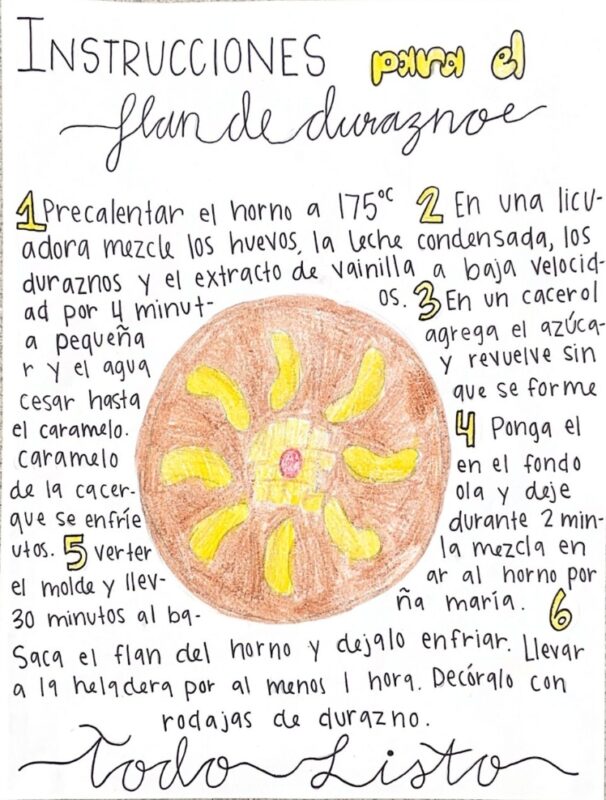 INSTRUCCIONES para el
flan de duraznoe
1 Precalentar el horno a 175°C 2 En una licu-
adora mezcle los huevos, la leche condensada, los
duraznos y el extracto de vainilla a baja velocid-
ad por 4 minut- os. 3 En un cacerol
a pequeña agrega el azúca-
r y el agua y revuelve sin
cesar hasta que se forme
el caramelo. 4 Ponga el
caramelo en el fondo
de la cacer- ola y deje
que se enfríe durante 2 min-
utos. 5 verter la mezcla en
el molde y llev- ar al horno por
30 minutos al ba- ña maría. 6
Saca el flan del horno y dejalo enfriar. Llevar
a la heladera por al menos 1 hora. Decóralo con
rodajas de durazno.
Todo Listo